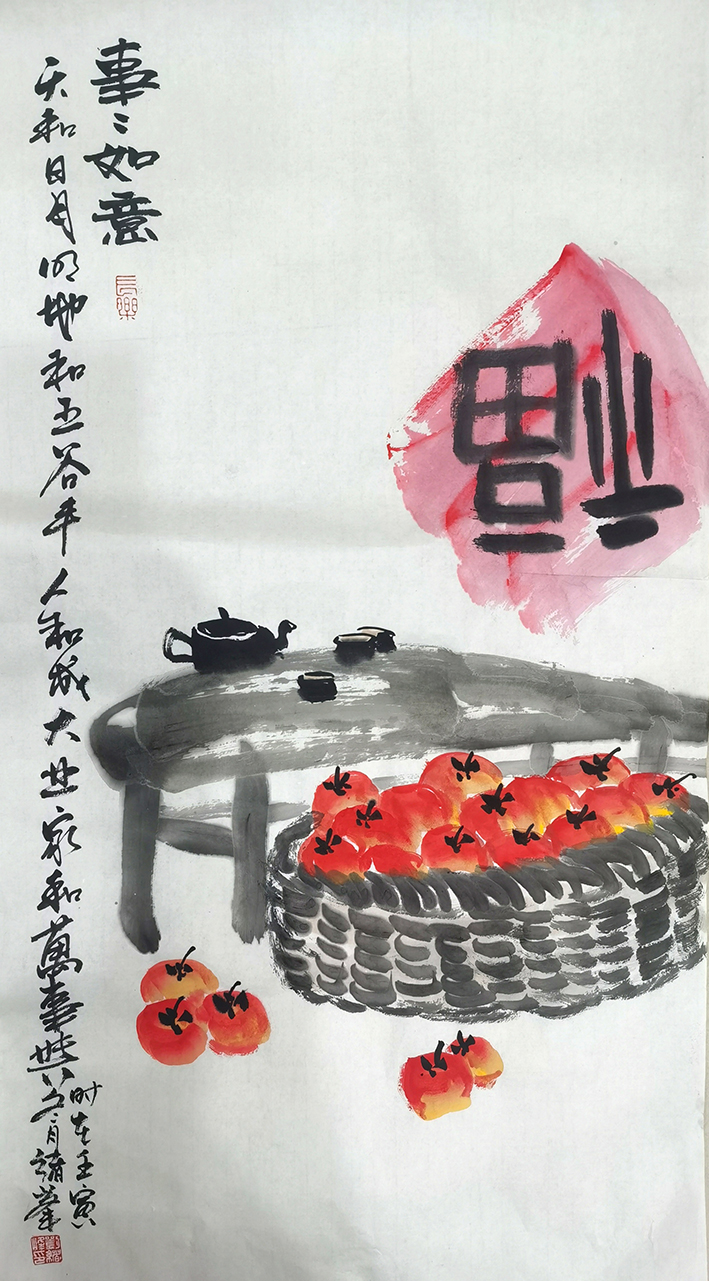 事〻如意
長樂
天和日月明地和五谷丰人和成大业家和萬事興
时在壬寅
冬月
福